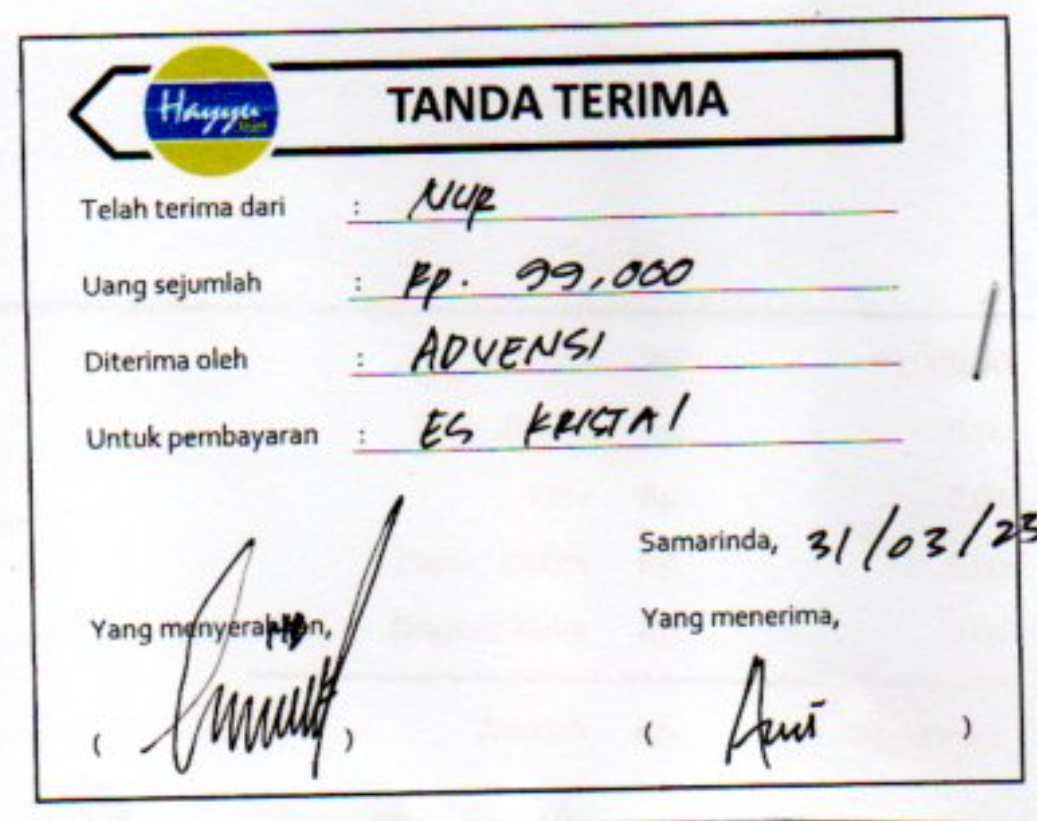 Hayyu
TANDA TERIMA
Telah terima dari : NUR
Uang sejumlah : Rp. 99,000
Diterima oleh : ADVENSI
Untuk pembayaran : ES KRISTAl
Samarinda, 31/03/23
Yang menyerahkan, Yang menerima,
( ) ( )